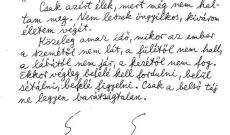 Csak azért élek, mert még nem hal-
tam meg. Nem leszek öngyilkos, kivárom
életem végét.
Közeleg amaz idő, mikor az ember
a szemétől nem lát, a fülétől nem hall,
a lábától nem jár, a kezétől nem fog.
Ekkor végleg befelé kell fordulni, belül
sétálni, befelé figyelni. Csak a belső táj
ne legyen barátságtalan.
S S